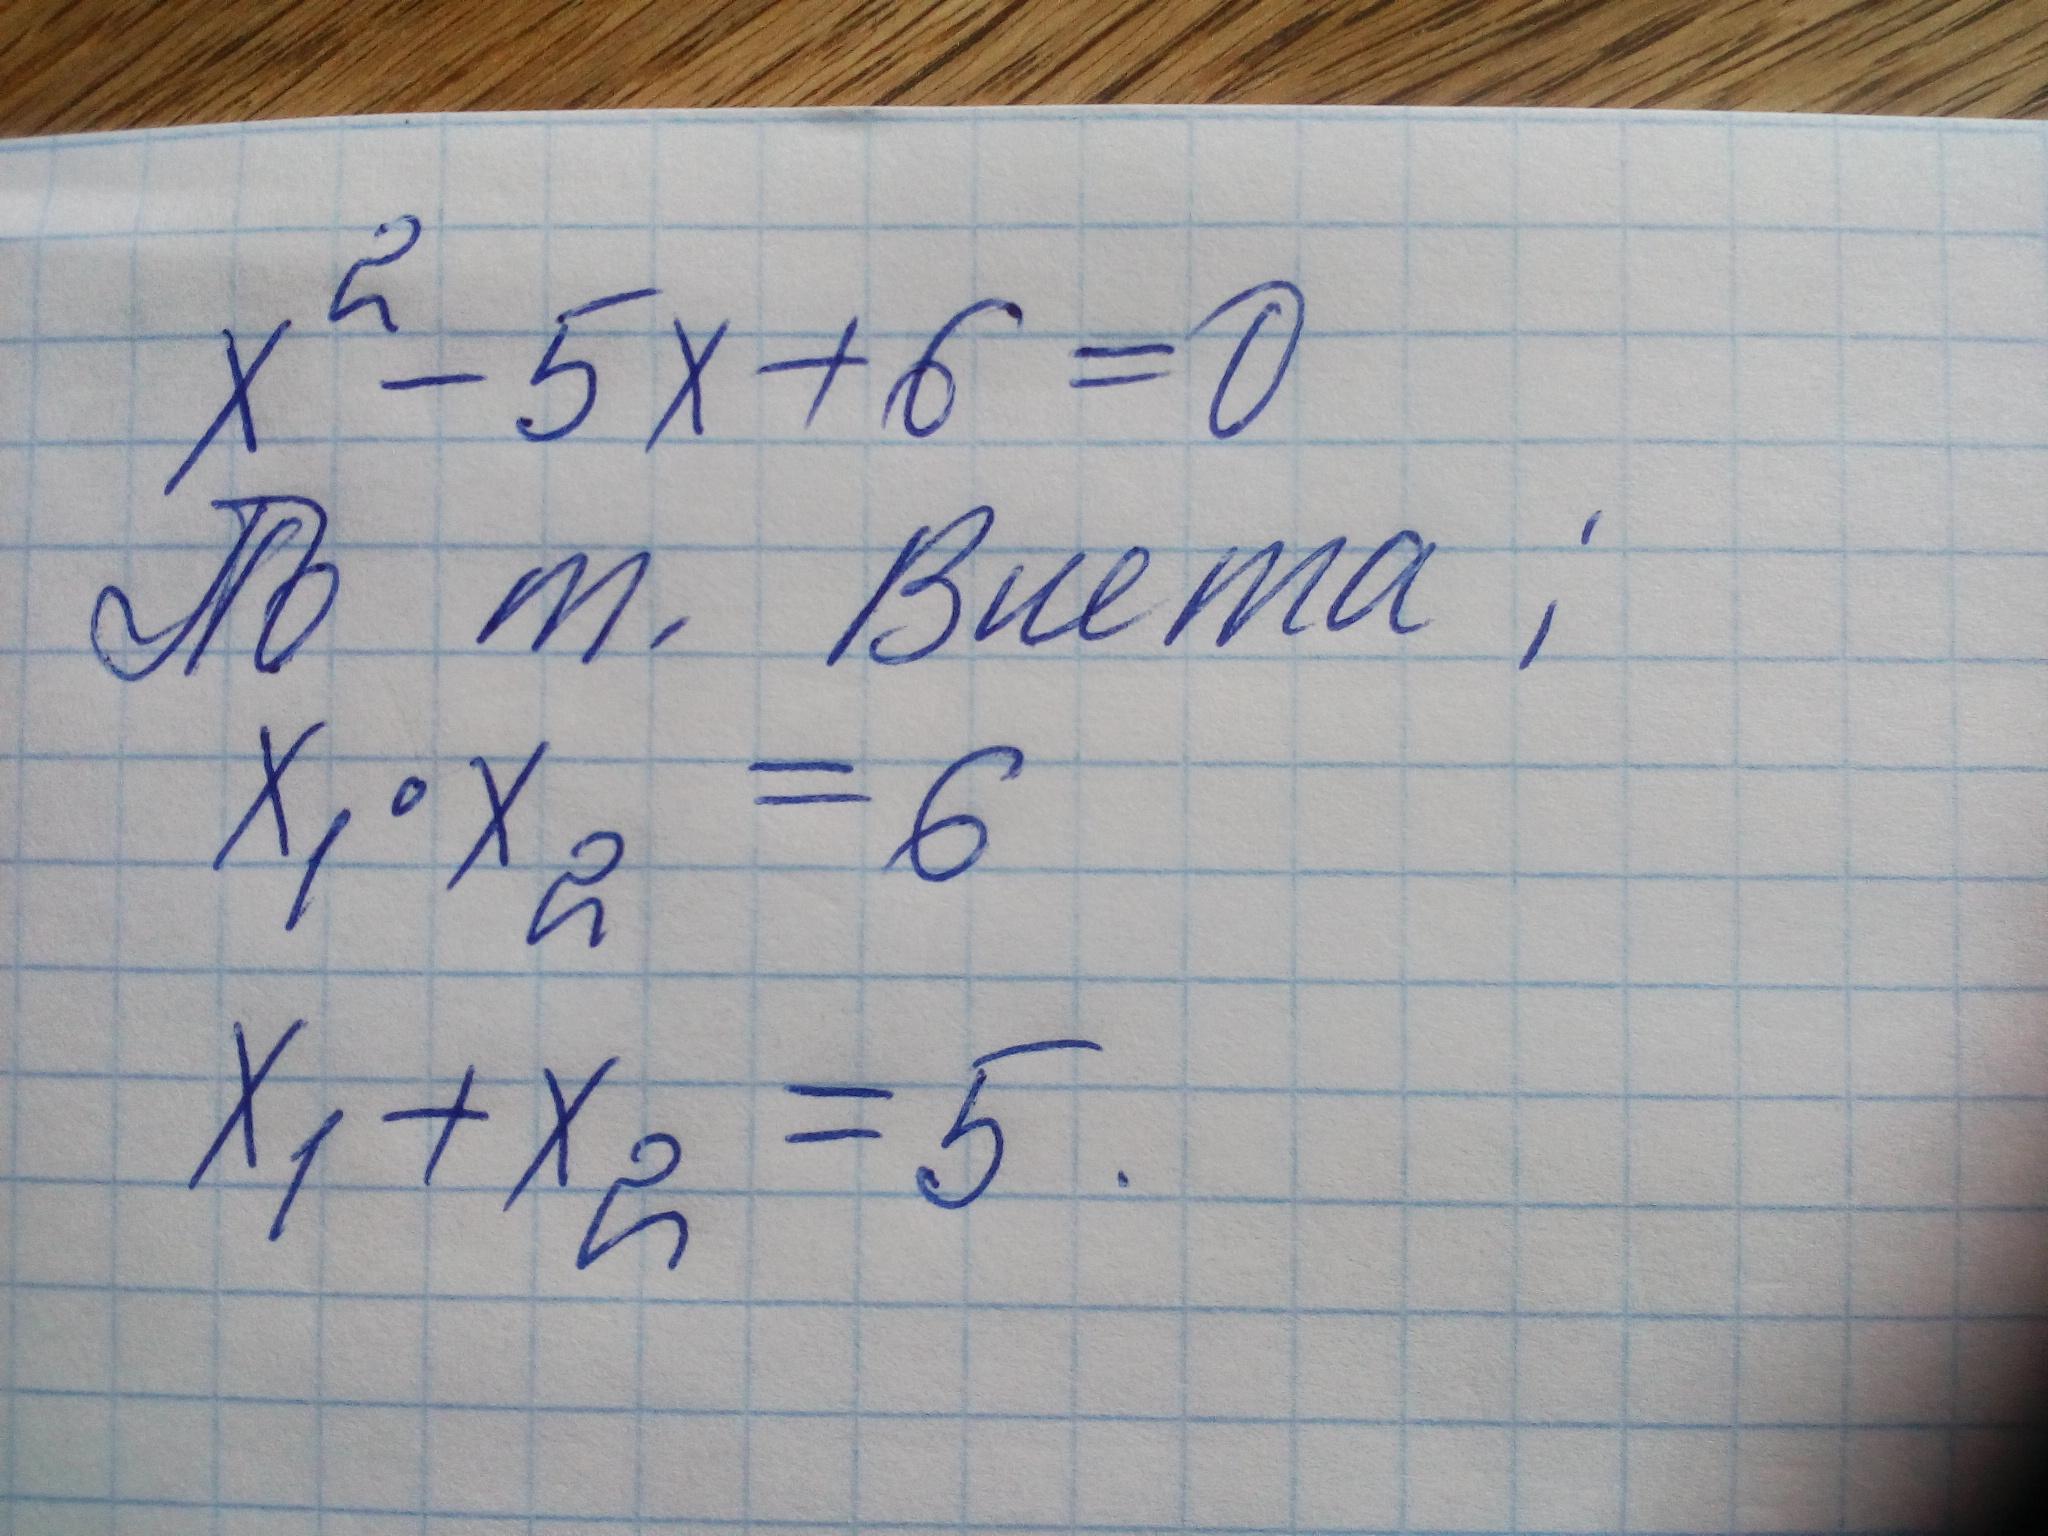 x² - 5x + 6 = 0
По т. Виета ;
x₁ · x₂ = 6
x₁ + x₂ = 5.